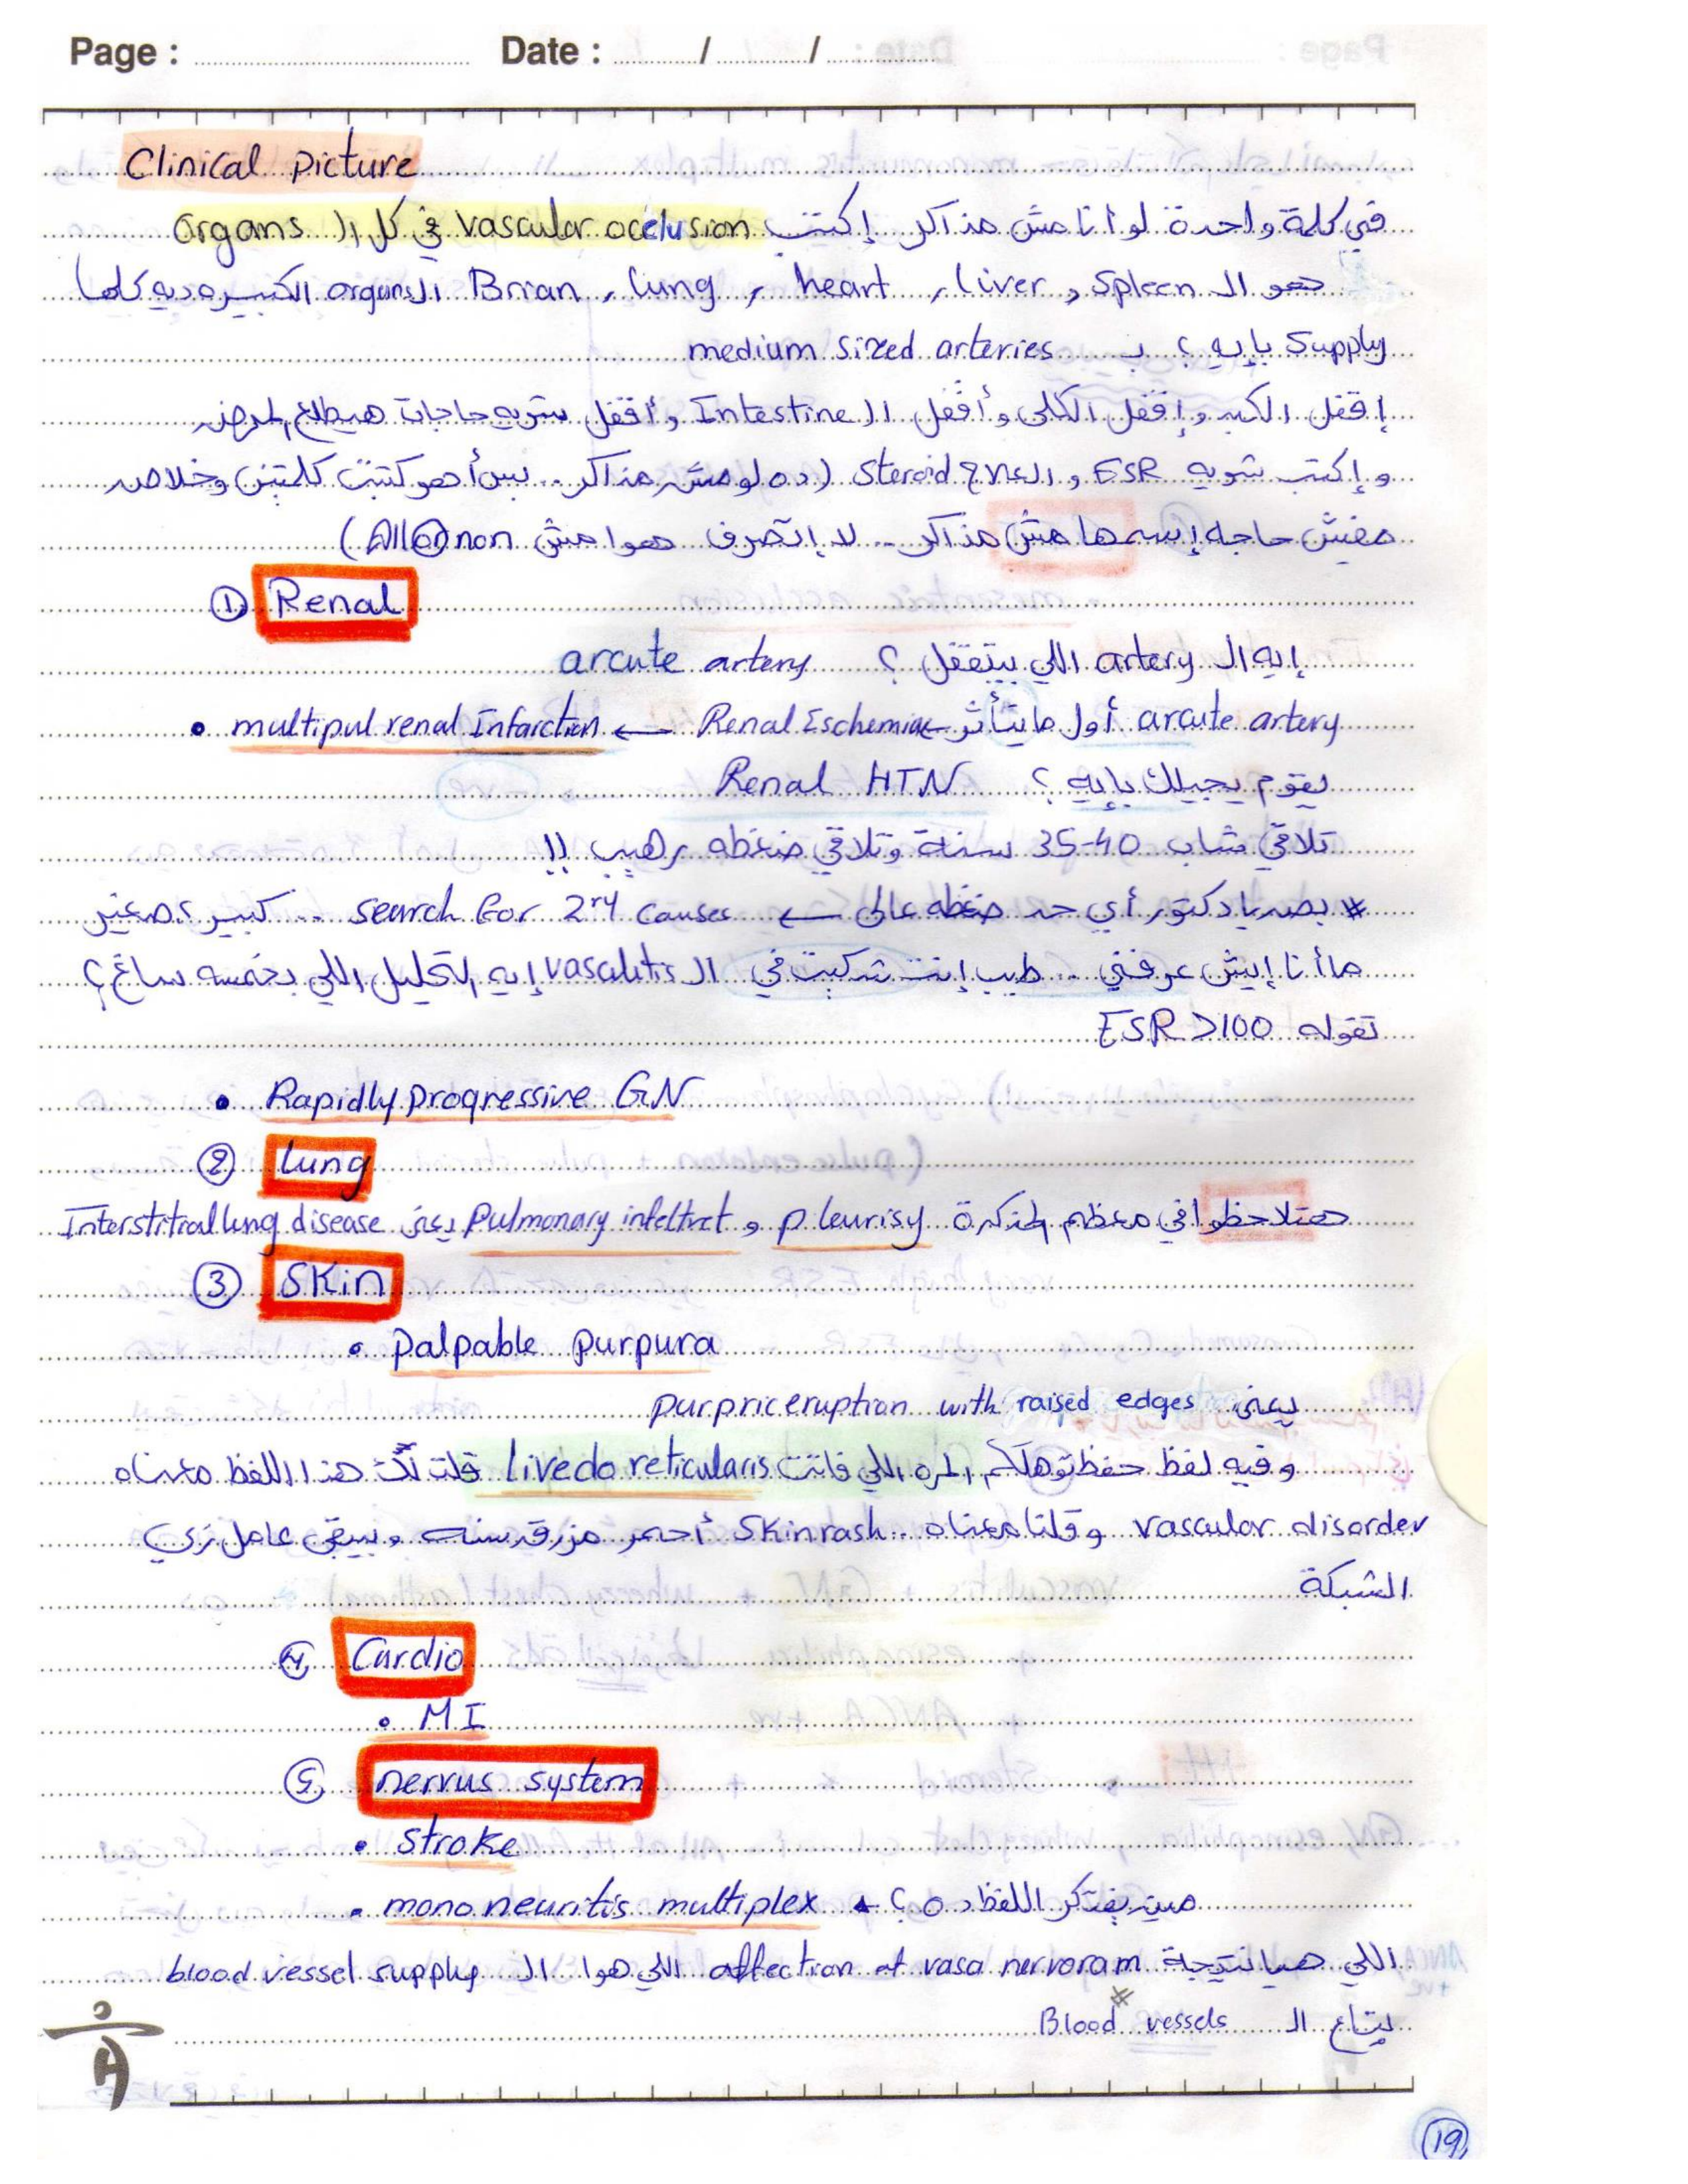 Page : Date : / /
Clinical picture
في كلمة واحدة لو أنا مش مذاكر إكتب vascular occlusion في كل الـ organs
هو الـ spleen و liver , heart , lung , Brian الـ organs الكبيره ديه كلها
supply بإيه ؟ بـ medium sized arteries
إقفل الكبد وإقفل الكلى وأقفل الـ Intestine وأقفل شويه حاجات هيطلع المرض
وإكتب شويه ESR والعلاج steroid (ده لو مش مذاكر .. بس أهو كتبت كلمتين وخلاص
مفيش حاجه إسمها مش مذاكر .. لا إتصرف هوا مش All or non)
① Renal
إيه الـ artery اللي بيتقفل ؟ arcute artery
arcute artery أول ما يتأثر ← Renal Eschemia ← multipul renal Infarction •
يقوم يجيلك بإيه ؟ Renal HTN
تلاقي شاب 35-40 سنة وتلاقي ضغطه رهيب !!
# بصد يا دكتور أي حد ضغطه عالى ← search for 2ry causes .. كبير ، صغير
ما أنا إيش عرفني .. طيب إنت شكيت في الـ vasculitis إيه التحليل اللي بخمسه ساغ ؟
تقوله ESR >100
• Rapidly progressive GN
② Lung
هتلاحظوا في معظم المذكرة pleurisy و Pulmonary infeltret يعنى Interstitial lung disease
③ Skin
• palpable purpura
يعنى purpric eruption with raised edges
وفيه لفظ حفظتوهلكم المره اللي فاتت Livedo reticularis قلت لك هذا اللفظ معناه
vascular disorder وقلنا معناه .. skin rash أحمر مزرق سنه وبيبقى عامل زي
الشبكة
④ Cardio
• MI
⑤ nervus system
• stroke
• mono neuritis multiplex مين يفتكر اللفظ ده ؟
اللي هيا نتيجة affection of vasa nervoram اللي هوا الـ blood vessel supply
بتاع الـ Blood vessels
19